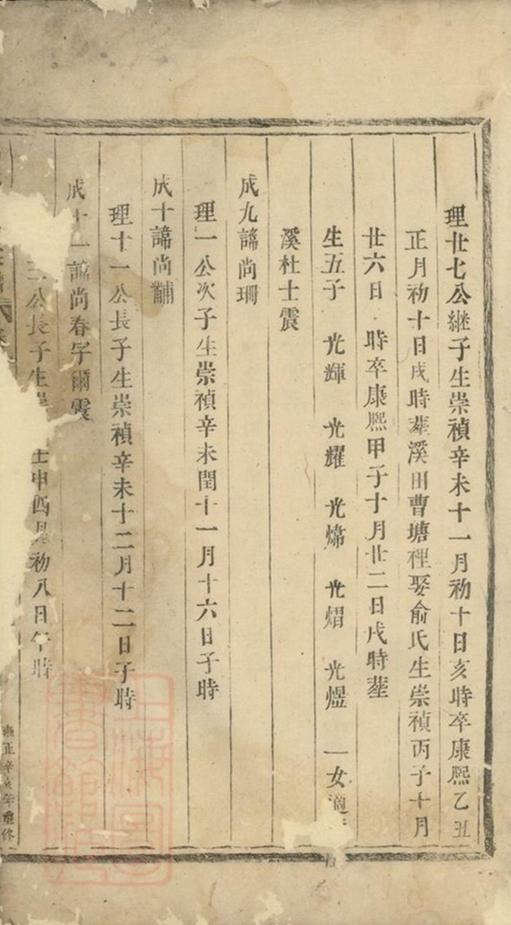 理廿七公継子生崇禎辛未十一月初十日亥時卒康熈乙丑
正月初十日戌時葬溪田曹塘裡娶俞氏生崇禎丙子十月
廿六日 時卒康熈甲子十月廿二日戌時葬
生五子 光輝 光耀 光㷌 光熠 光煜 一女適
溪杜士震
成九諱尚珊
理一公次子生崇禎辛未閏十一月十六日子時
成十諱尚黼
理十一公長子生崇禎辛未十二月十二日子時
成十一諱尚春字爾震
公長子生 壬申 月初八日午時
雍正辛亥年重修